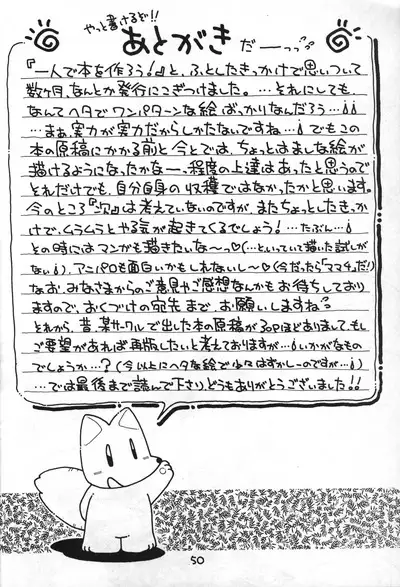 やっと書けるど!!
あとがき だーっっ
『一人で本を作ろう!』と、ふとしたきっかけで思いついて
数ヶ月、なんとか発行にこぎつけました。…それにしても
なんてヘタでワンパターンな絵ばっかりなんだろう…!!
…まぁ、実力が実力だからしかたないですね…! でもこの
本の原稿にかかる前と今とでは、ちょっとはましな絵が
描けるようになったかなー、程度の上達はあったと思うので
それだけでも、自分自身の収穫ではなかったかと思います。
今のところ『次』は考えていないのですが、またちょっとしたきっか
けで、ムラムラとやる気が起きてくるでしょう!…たぶん…!
その時にはマンガも描きたいな〜っ♡(…といっていて描いた試しが
ない!)、アニパロも面白いかもしれないし〜♡(今だったら「ママ4」だ!)
なお、みなさまからのご意見やご感想なんかもお待ちしており
ますので、おくづけの宛先まで お願いしますね
それから、昔、某サークルで出した本の原稿が30pほどありまして、もし
ご要望があれば再版したいと考えておりますが…!いかがなもの
でしょうか…?(今以上にヘタな絵で少々はずかしーのですが…!)
…では最後まで読んで下さり、どうもありがとうございました!!
50